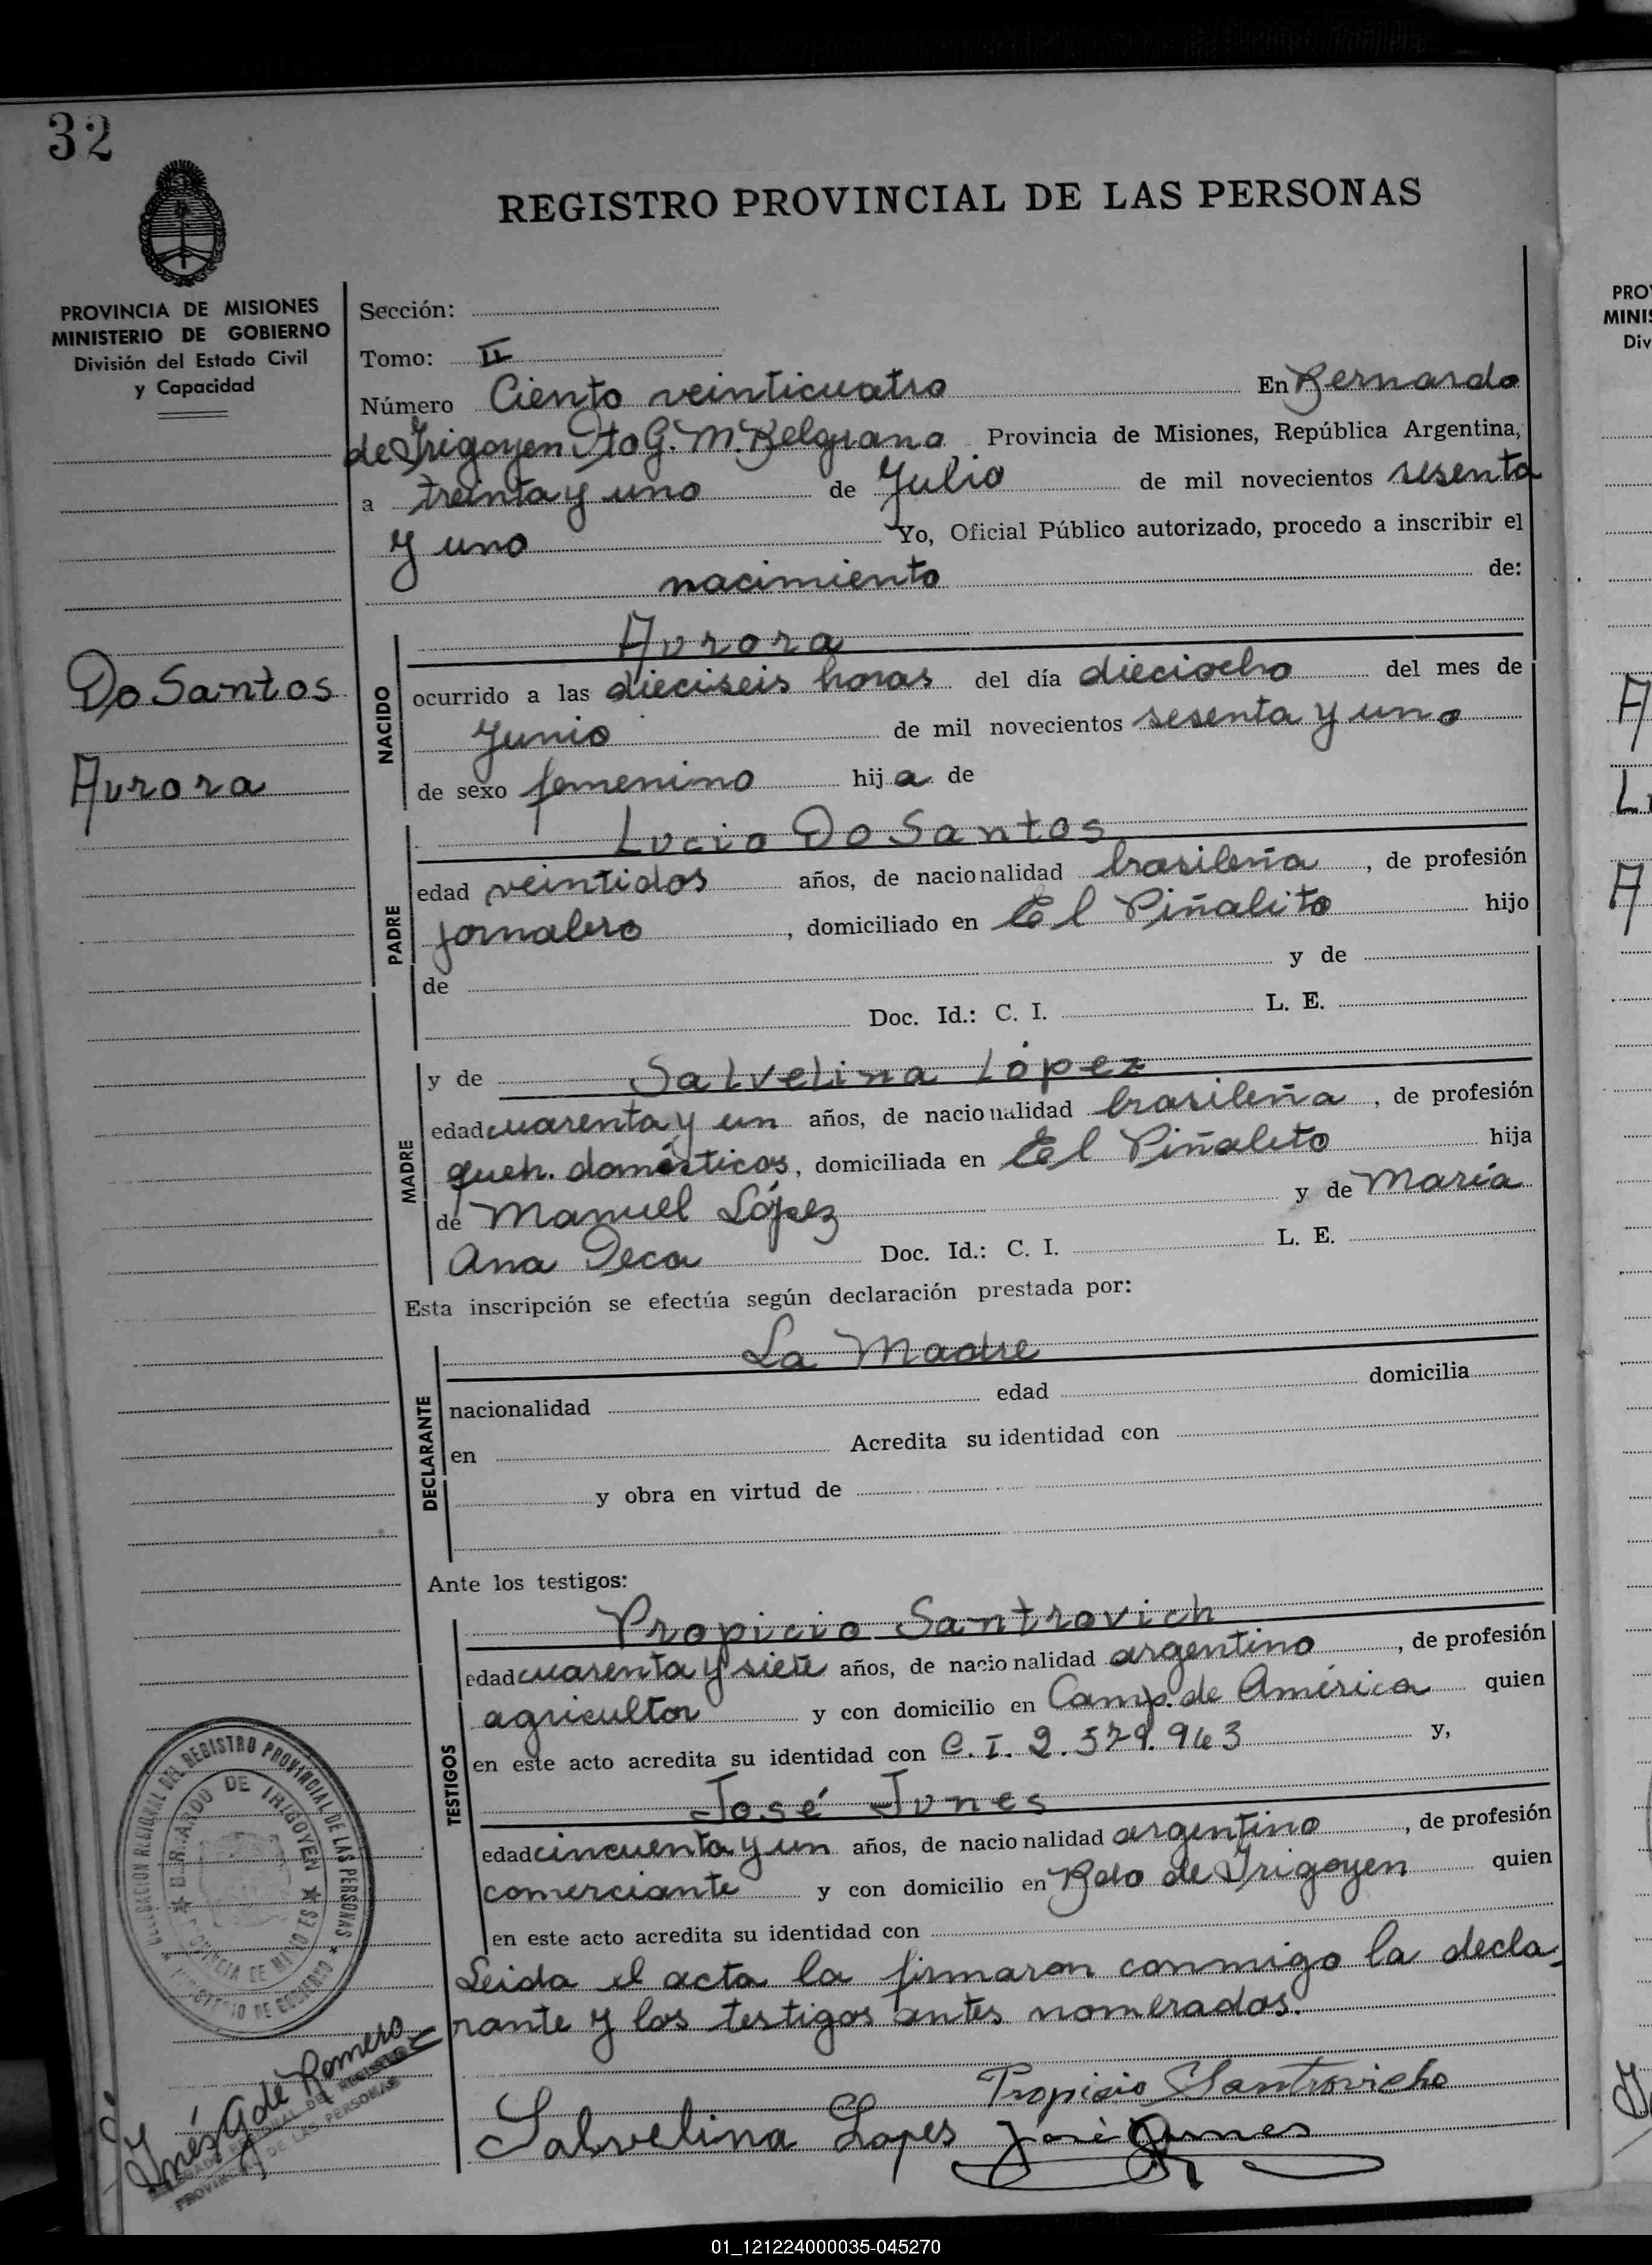 32
REGISTRO PROVINCIAL DE LAS PERSONAS
PROVINCIA DE MISIONES
MINISTERIO DE GOBIERNO
División del Estado Civil
y Capacidad
Sección:
Tomo: II
Número Ciento veinticuatro En Bernardo
de Irigoyen Dto G. M. Belgrano Provincia de Misiones, República Argentina,
a treinta y uno de Julio de mil novecientos sesenta
y uno Yo, Oficial Público autorizado, procedo a inscribir el
nacimiento de:
Do Santos
Aurora
NACIDO
Aurora
ocurrido a las dieciseis horas del día dieciocho del mes de
Junio de mil novecientos sesenta y uno
de sexo femenino hija de
PADRE
Lucio Do Santos
edad veintidos años, de nacionalidad brasileña, de profesión
jornalero, domiciliado en El Piñalito hijo
de y de
Doc. Id.: C. I. L. E.
MADRE
y de Salvelina López
edad cuarenta y un años, de nacionalidad brasileña, de profesión
queh. domésticos, domiciliada en El Piñalito hija
de Manuel López y de María
Ana Deca Doc. Id.: C. I. L. E.
Esta inscripción se efectúa según declaración prestada por:
DECLARANTE
La Madre
nacionalidad edad domicilia
en Acredita su identidad con
y obra en virtud de
Ante los testigos:
TESTIGOS
Propicio Santrovich
edad cuarenta y siete años, de nacionalidad argentino, de profesión
agricultor y con domicilio en Camp. de América quien
en este acto acredita su identidad con C. I. 2.579.963 y,
José Junes
edad cincuenta y un años, de nacionalidad argentino, de profesión
comerciante y con domicilio en Bdo de Irigoyen quien
en este acto acredita su identidad con
Leida el acta la firmaron conmigo la decla
rante y los testigos antes nomerados.
Propicio Santrovicho
Salvelina Lopes José Junes
DELEGACION REGIONAL DEL REGISTRO PROVINCIAL DE LAS PERSONAS
MINISTERIO DE GOBIERNO
BERNARDO DE IRIGOYEN
PROVINCIA DE MISIONES
Inés G de Romero
PROVINCIAL DE LAS PERSONAS
PRO
MINIS
Div
01_121224000035-045270